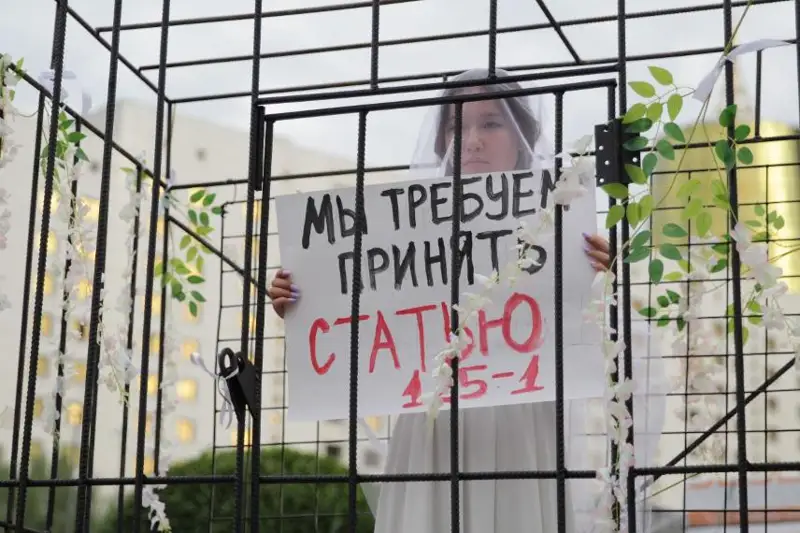 МЫ ТРЕБУЕМ
ПРИНЯТЬ
СТАТЬЮ
125-1